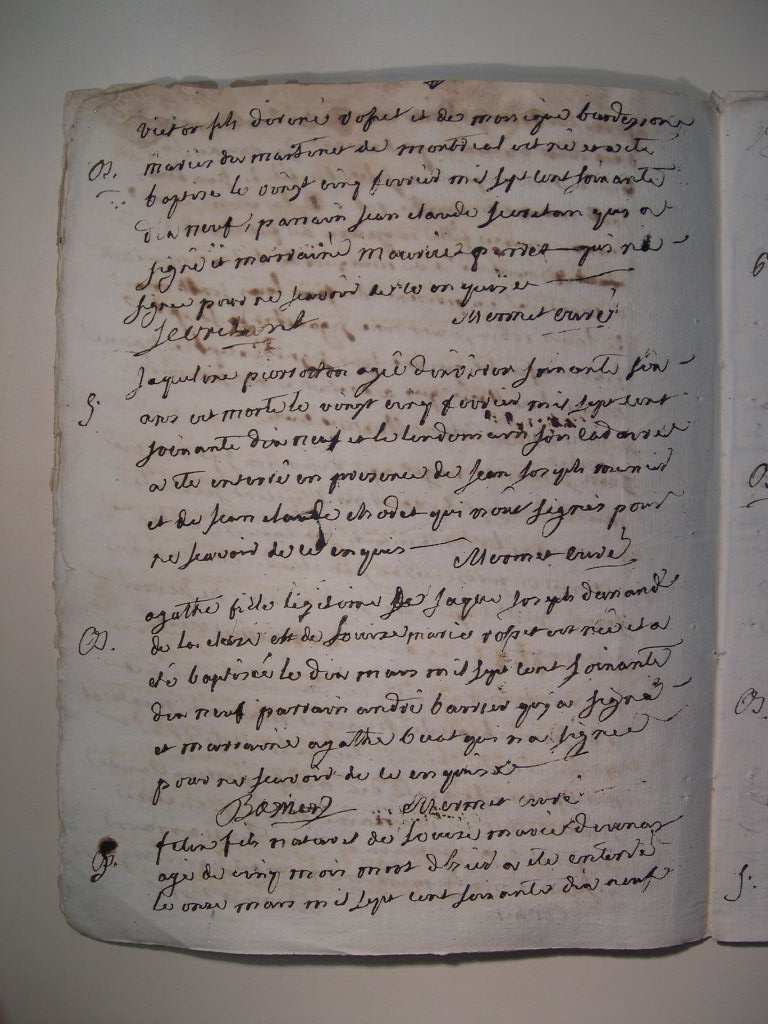 victor fils d'irené rosset et de monique
mariés du martinet de montreal est né et a été
B. baptisé le vingt cinq fevrier mil sept cent soixante
dix neuf, parrain jean claude secretan qui a
signé et marraine mauricie perret qui na
signee pour ne scavoir de ce enquise
Secretant Mermet curé
jaqueline pierrotton agée d'environ soixante six
S. ans est morte le vingt cinq fevrier mil sept cent
soixante dix neuf et le lendemain son cadavre
a été enterré en presence de jean joseph meunier
et de jean claude chodet qui n'ont signés pour
ne scavoir de ce enquis Mermet curé
agathe fille légitime de jaque joseph
B. de la et de Louise marie rosset est née et a
été baptisée le dix mars mil sept cent soixante
dix neuf parrain andré barrier qui a signé
et marraine agathe buat qui na signee
pour ne scavoir de ce enquise
Barrier Mermet curé
felix fils naturel de Louise marie
S. agé de cinq mois mort d'hier a été enterré
le onze mars mil sept cent soixante dix neuf
B.
S.